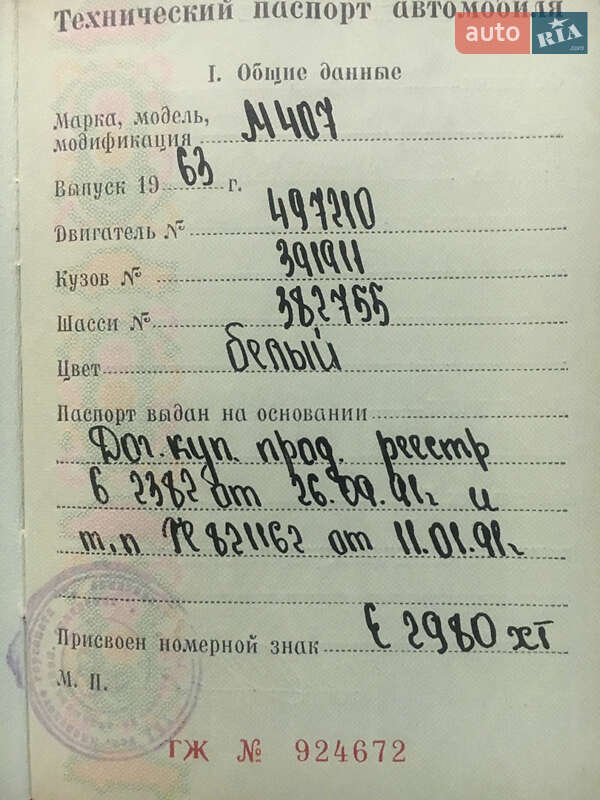 Технический паспорт автомобиля
auto RIA .com
I. Общие данные
Марка, модель,
модификация М407
Выпуск 19 63 г.
Двигатель № 497210
Кузов № 391911
Шасси № 382755
Цвет белый
Паспорт выдан на основании
Дог. куп. прод. реестр
6 2382 от 26.09.91г и
т.п 821162 от 11.01.91г
Присвоен номерной знак Е 2980 ХТ
М. П.
ГЖ № 924672